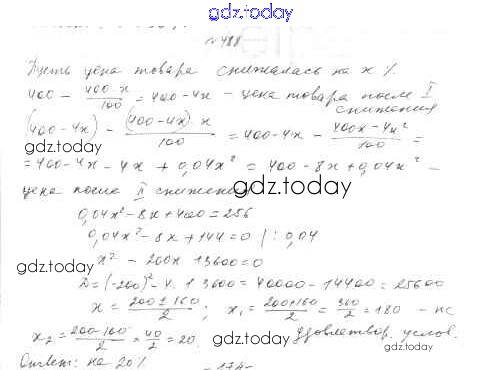 gdz.today
№488
Пусть цена товара снижалась на x %.
400 - 400·x/100 = 400-4x - цена товара после I
снижения
(400-4x) - (400-4x)·x/100 = 400-4x - 400x-4x²/100 =
= 400-4x-4x+0,04x² = 400-8x+0,04x² -
цена после II снижения
gdz.today
0,04x²-8x+400=256
0,04x²-8x+144=0 |:0,04
gdz.today
x² - 200x 13600=0
gdz.today
D=(-200)²-4·1 3600=40000-14400=25600
x = 200±160/2; x₁=200+160/2=360/2=180 - не
удовлетвор. услов.
x₂=200-160/2=40/2=20.
gdz.today
Ответ: на 20%
gdz.today
-174-